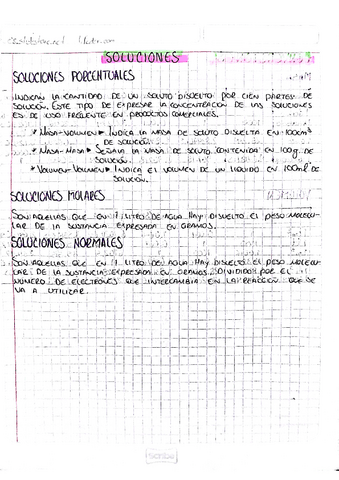 SOLUCIONES
SOLUCIONES PORCENTUALES
INDICAN LA CANTIDAD DE UN SOLUTO DISUELTO POR CIEN PARTES DE
SOLUCIÓN. ESTE TIPO DE EXPRESAR LA CONCENTRACIÓN DE LAS SOLUCIONES
ES DE USO FRECUENTE EN PRODUCTOS COMERCIALES.
* MASA-VOLUMEN • INDICA LA MASA DE SOLUTO DISUELTA EN 100cm³
DE SOLUCIÓN.
* MASA-MASA • SEÑALA LA MASA DE SOLUTO CONTENIDA EN 100g. DE
SOLUCIÓN.
* VOLUMEN-VOLUMEN • INDICA EL VOLUMEN DE UN LIQUIDO EN 100ml DE
SOLUCIÓN.
SOLUCIONES MOLARES
SON AQUELLAS QUE EN 1 LITRO DE AGUA HAY DISUELTO EL PESO MOLECU-
LAR DE LA SUSTANCIA EXPRESADA EN GRAMOS.
SOLUCIONES NORMALES
SON AQUELLAS QUE EN 1 LITRO DE AGUA HAY DISUELTO EL PESO MOLECU-
LAR DE LA SUSTANCIA EXPRESADA EN GRAMOS, DIVIDIDOS POR EL
NÚMERO DE ELECTRONES QUE INTERCAMBIA EN LA REACCIÓN QUE SE
VA A UTILIZAR.
Scribe